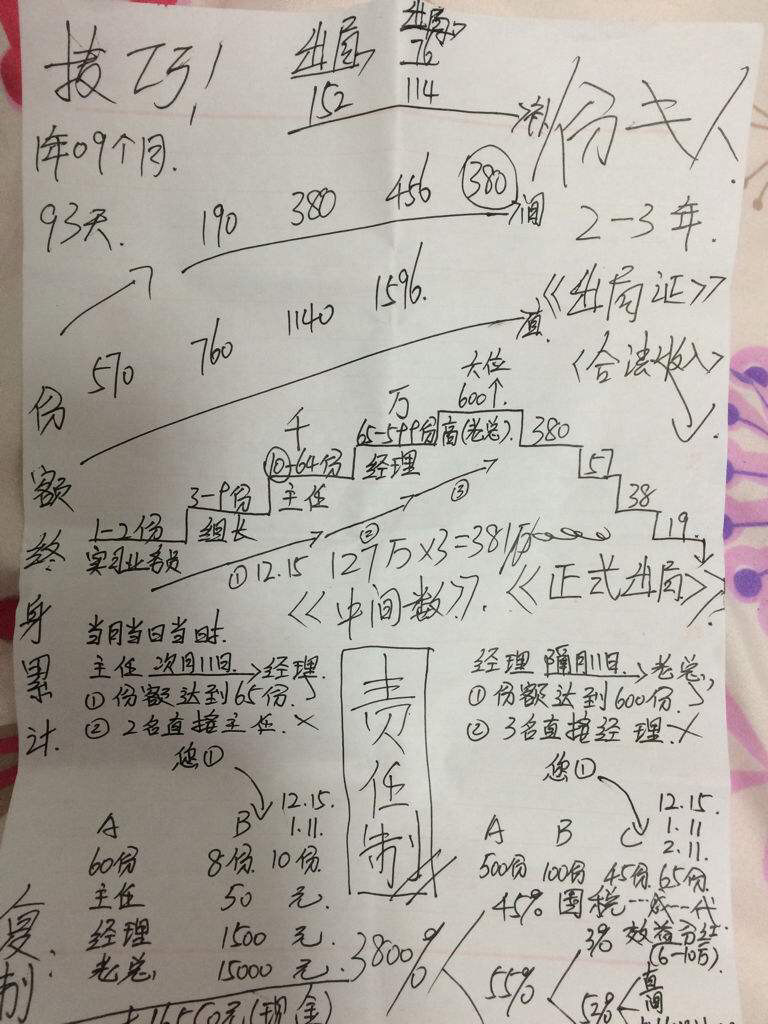 技巧!
出局
出局
76
152 114
份 人
1年09个月.
93天.
190 380 456 380 间
2-3年.
570 760 1140 1596. 直
《出局证》
《合法收入》
份额终身累计.
千 万 六位
600↑
1-2份 3-9份 10-64份 65-599份 高(老总). 380 57 38 19.
实习业务员 组长 主任 经理
① 12.15 ② ③
127万×3=381万
《中间数》. 《正式出局》
当月当日当时.
主任 次月11日. 经理.
① 份额达到65份.
② 2名直接主任. ×
您①
经理 隔月11日. 老总,
① 份额达到600份.
② 3名直接经理. ×
您①
责任制
12.15.
A B 1.11.
60份 8份 10份.
主任 50 元.
经理 1500 元.
老总, 15000 元.
12.15.
A B C 1.11
2.11.
500份 100份 45份 65份.
复制:
3800%
45% 国税
55%
3% 效益分红
(6-10万)
52%
直
间
16550元(现金)